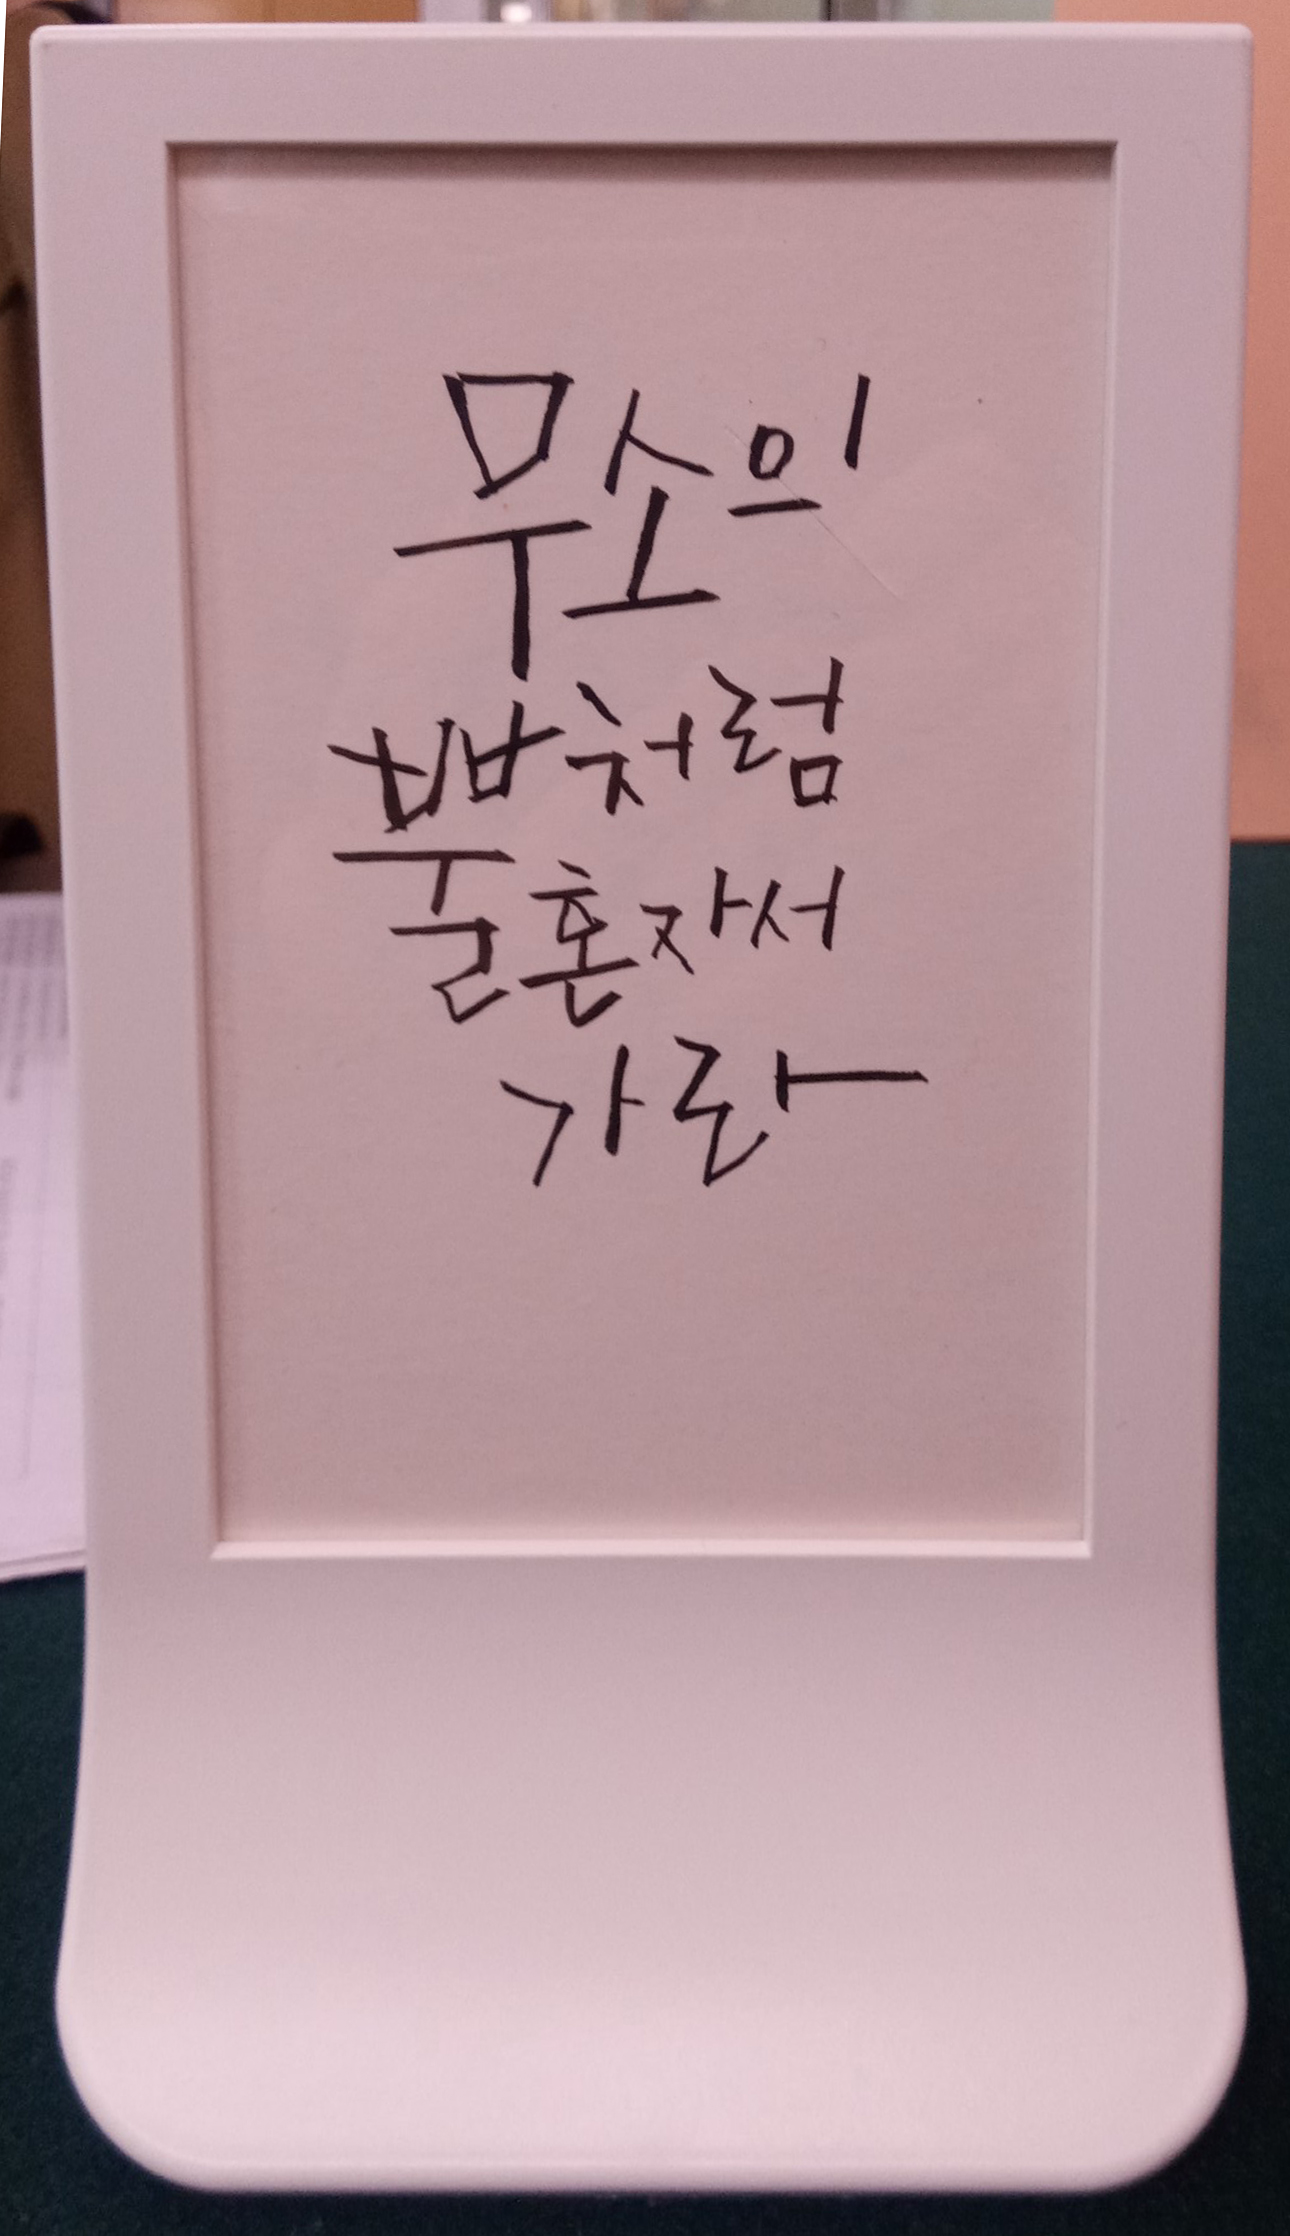 무소의
뿔처럼
혼자서
가라